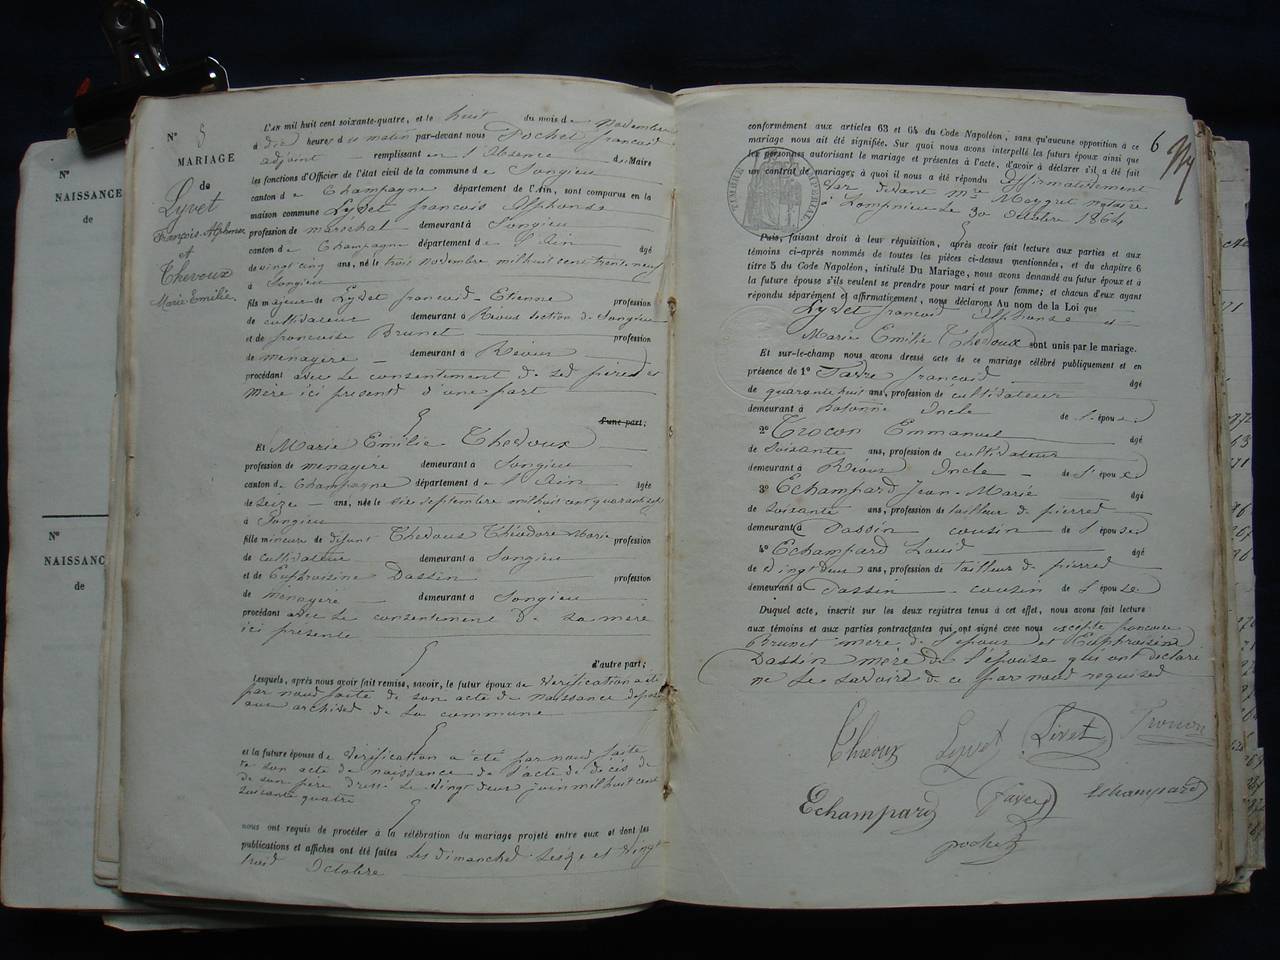 N°
NAISSANCE
de
N°
NAISSANCE
de
N° 5
MARIAGE
de
Lyvet
François-Alphonse
et
Thevoux
Marie Emilie
L'an mil huit cent soixante-quatre, et le huit du mois de novembre
à dix heures du matin par-devant nous Pochet françois
adjoint remplissant en l'absence du Maire
les fonctions d'Officier de l'état civil de la commune de Songieu
canton de Champagne département de l'Ain, sont comparus en la
maison commune Lyvet françois Alphonse
profession de maréchal demeurant à Songieu
canton de Champagne département de l'Ain âgé
de vingt cinq ans, né le trois novembre mil huit cent trente neuf
à Songieu
fils majeur de Lyvet françois-Etienne profession
de cultivateur demeurant à Réoux section de Songieu
et de françoise Brunet profession
de ménagère demeurant à Réoux
procédant avec le consentement de ses père et
mère ici présents d'une part
d'une part;
Et Marie Emilie Thevoux
profession de ménagère demeurant à Songieu
canton de Champagne département de l'Ain âgée
de seize ans, née le six septembre mil huit cent quarante sept
à Songieu
fille mineure de défunt Thevoux Théodore Marie profession
de cultivateur demeurant à Songieu
et de Euphroisine Dassin profession
de ménagère demeurant à Songieu
procédant avec le consentement de sa mère
ici présente
d'autre part;
Lesquels, après nous avoir fait remise, savoir, le futur époux de vérification a été
par nous faite de son acte de naissance déposé
aux archives de la commune
et la future épouse de vérification a été par nous faite
de son acte de naissance de l'acte de décès de
de son père dressé le vingt deux juin mil huit cent
soixante quatre
nous ont requis de procéder à la célébration du mariage projeté entre eux et dont les
publications et affiches ont été faites les dimanches seize et vingt
trois Octobre
6
conformément aux articles 63 et 64 du Code Napoléon, sans qu'aucune opposition à ce
mariage nous ait été signifiée. Sur quoi nous avons interpellé les futurs époux ainsi que
les personnes autorisant le mariage et présentes à l'acte, d'avoir à déclarer s'il a été fait
un contrat de mariage; à quoi il nous a été répondu affirmativement
par devant Me Meygret notaire
à Lompnieu le 30 Octobre 1864
TIMBRE IMPÉRIAL
Puis, faisant droit à leur réquisition, après avoir fait lecture aux parties et aux
témoins ci-après nommés de toutes les pièces ci-dessus mentionnées, et du chapitre 6
titre 5 du Code Napoléon, intitulé Du Mariage, nous avons demandé au futur époux et à
la future épouse s'ils veulent se prendre pour mari et pour femme; et chacun d'eux ayant
répondu séparément et affirmativement, nous déclarons Au nom de la Loi que
Lyvet françois Alphonse et
Marie Emilie Thevoux sont unis par le mariage.
Et sur-le-champ nous avons dressé acte de ce mariage célébré publiquement et en
présence de 1° Favre françois âgé
de quarante huit ans, profession de cultivateur
demeurant à Oncle de l'époux
2° Trocon Emmanuel âgé
de soixante ans, profession de cultivateur
demeurant à Réoux Oncle de l'époux
3° Echampard Jean-Marie âgé
de soixante ans, profession de tailleur de pierres
demeurant à Dassin cousin de l'épouse
4° Echampard Louis âgé
de vingt deux ans, profession de tailleur de pierres
demeurant à Dassin cousin de l'épouse
Duquel acte, inscrit sur les deux registres tenus à cet effet, nous avons fait lecture
aux témoins et aux parties contractantes qui ont signé avec nous excepté françoise
Brunet mère de l'époux et Euphroisine
Dassin mère de l'épouse qui ont déclaré
ne le savoir de ce par nous requises
Thevoux Lyvet Livet Trocon
Echampard Favre Echampard
pochet